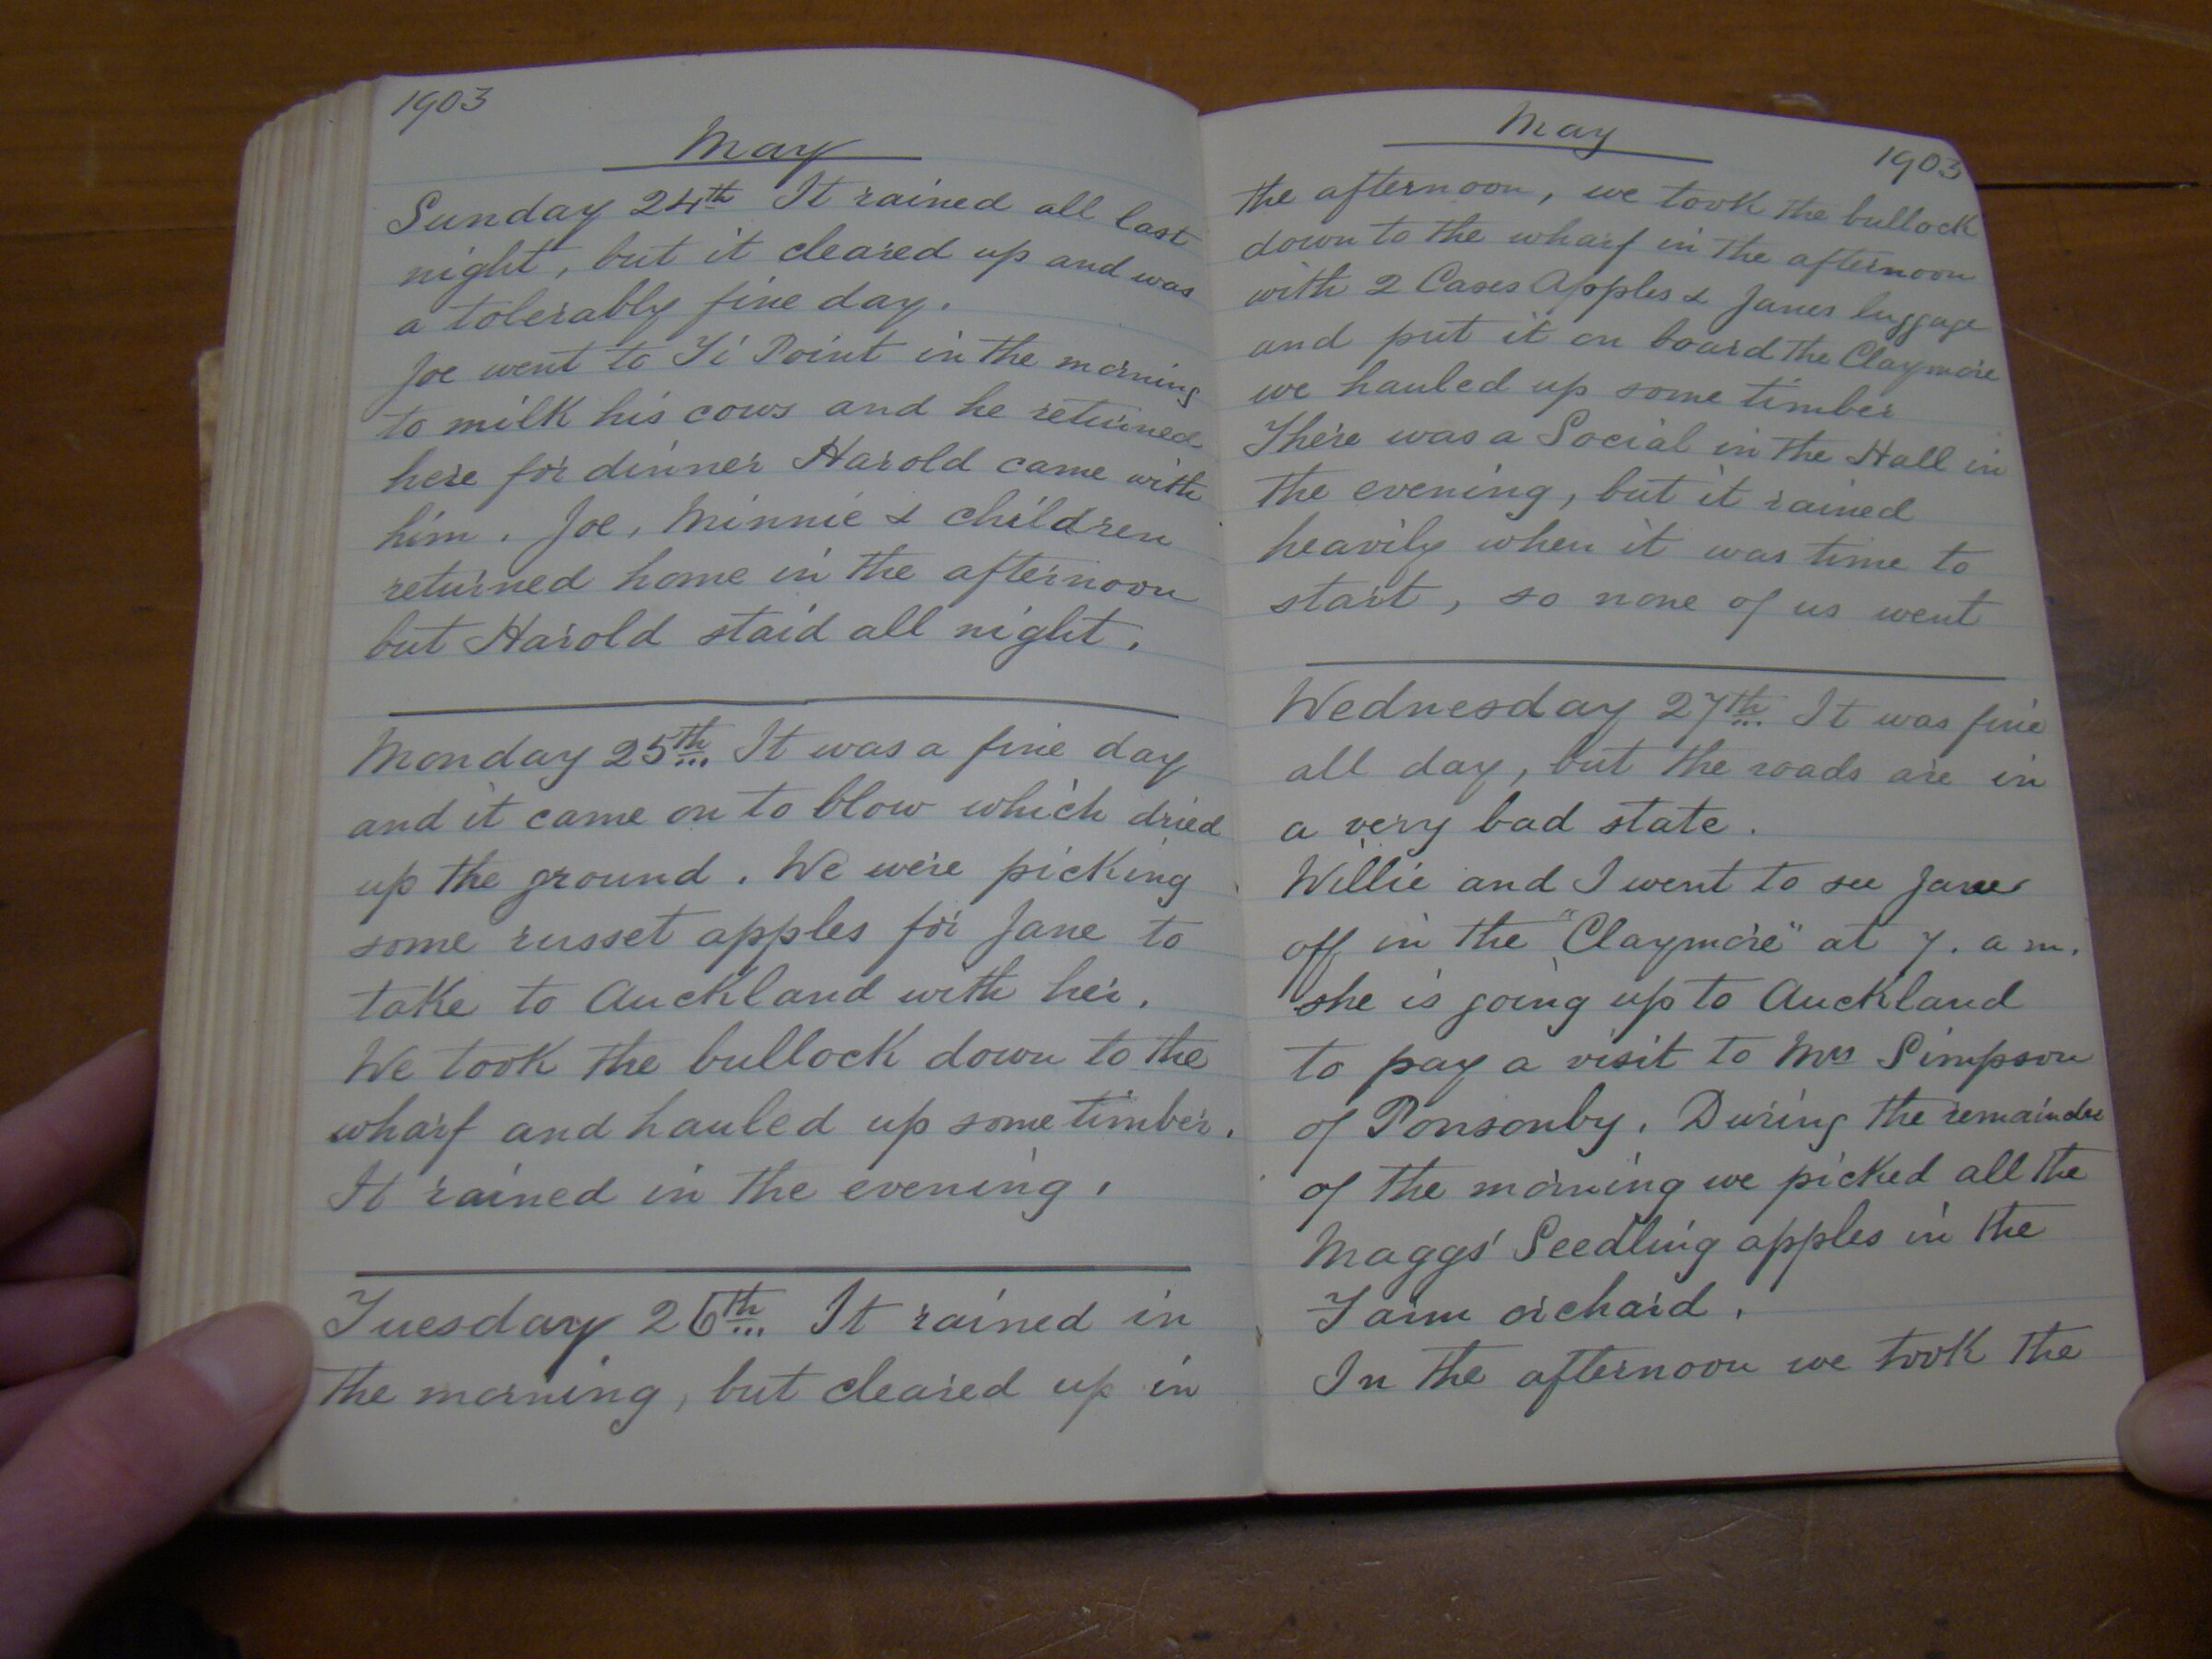 1903
May
Sunday 24th It rained all last
night, but it cleared up and was
a tolerably fine day.
Joe went to Ti Point in the morning
to milk his cows and he returned
here for dinner Harold came with
him. Joe, Minnie & children
returned home in the afternoon
but Harold staid all night.
Monday 25th It was a fine day
and it came on to blow which dried
up the ground. We were picking
some russet apples for Jane to
take to Auckland with her.
We took the bullock down to the
wharf and hauled up some timber.
It rained in the evening.
Tuesday 26th It rained in
the morning, but cleared up in
May
1903
the afternoon, we took the bullock
down to the wharf in the afternoon
with 2 Cases Apples & Janes luggage
and put it on board the Claymore
we hauled up some timber
There was a Social in the Hall in
the evening, but it rained
heavily when it was time to
start, so none of us went
Wednesday 27th It was fine
all day, but the roads are in
a very bad state.
Willie and I went to see Jane
off in the "Claymore" at 7. a m.
she is going up to Auckland
to pay a visit to Mrs Simpson
of Ponsonby. During the remainder
of the morning we picked all the
Maggs' Seedling apples in the
Farm orchard.
In the afternoon we took the